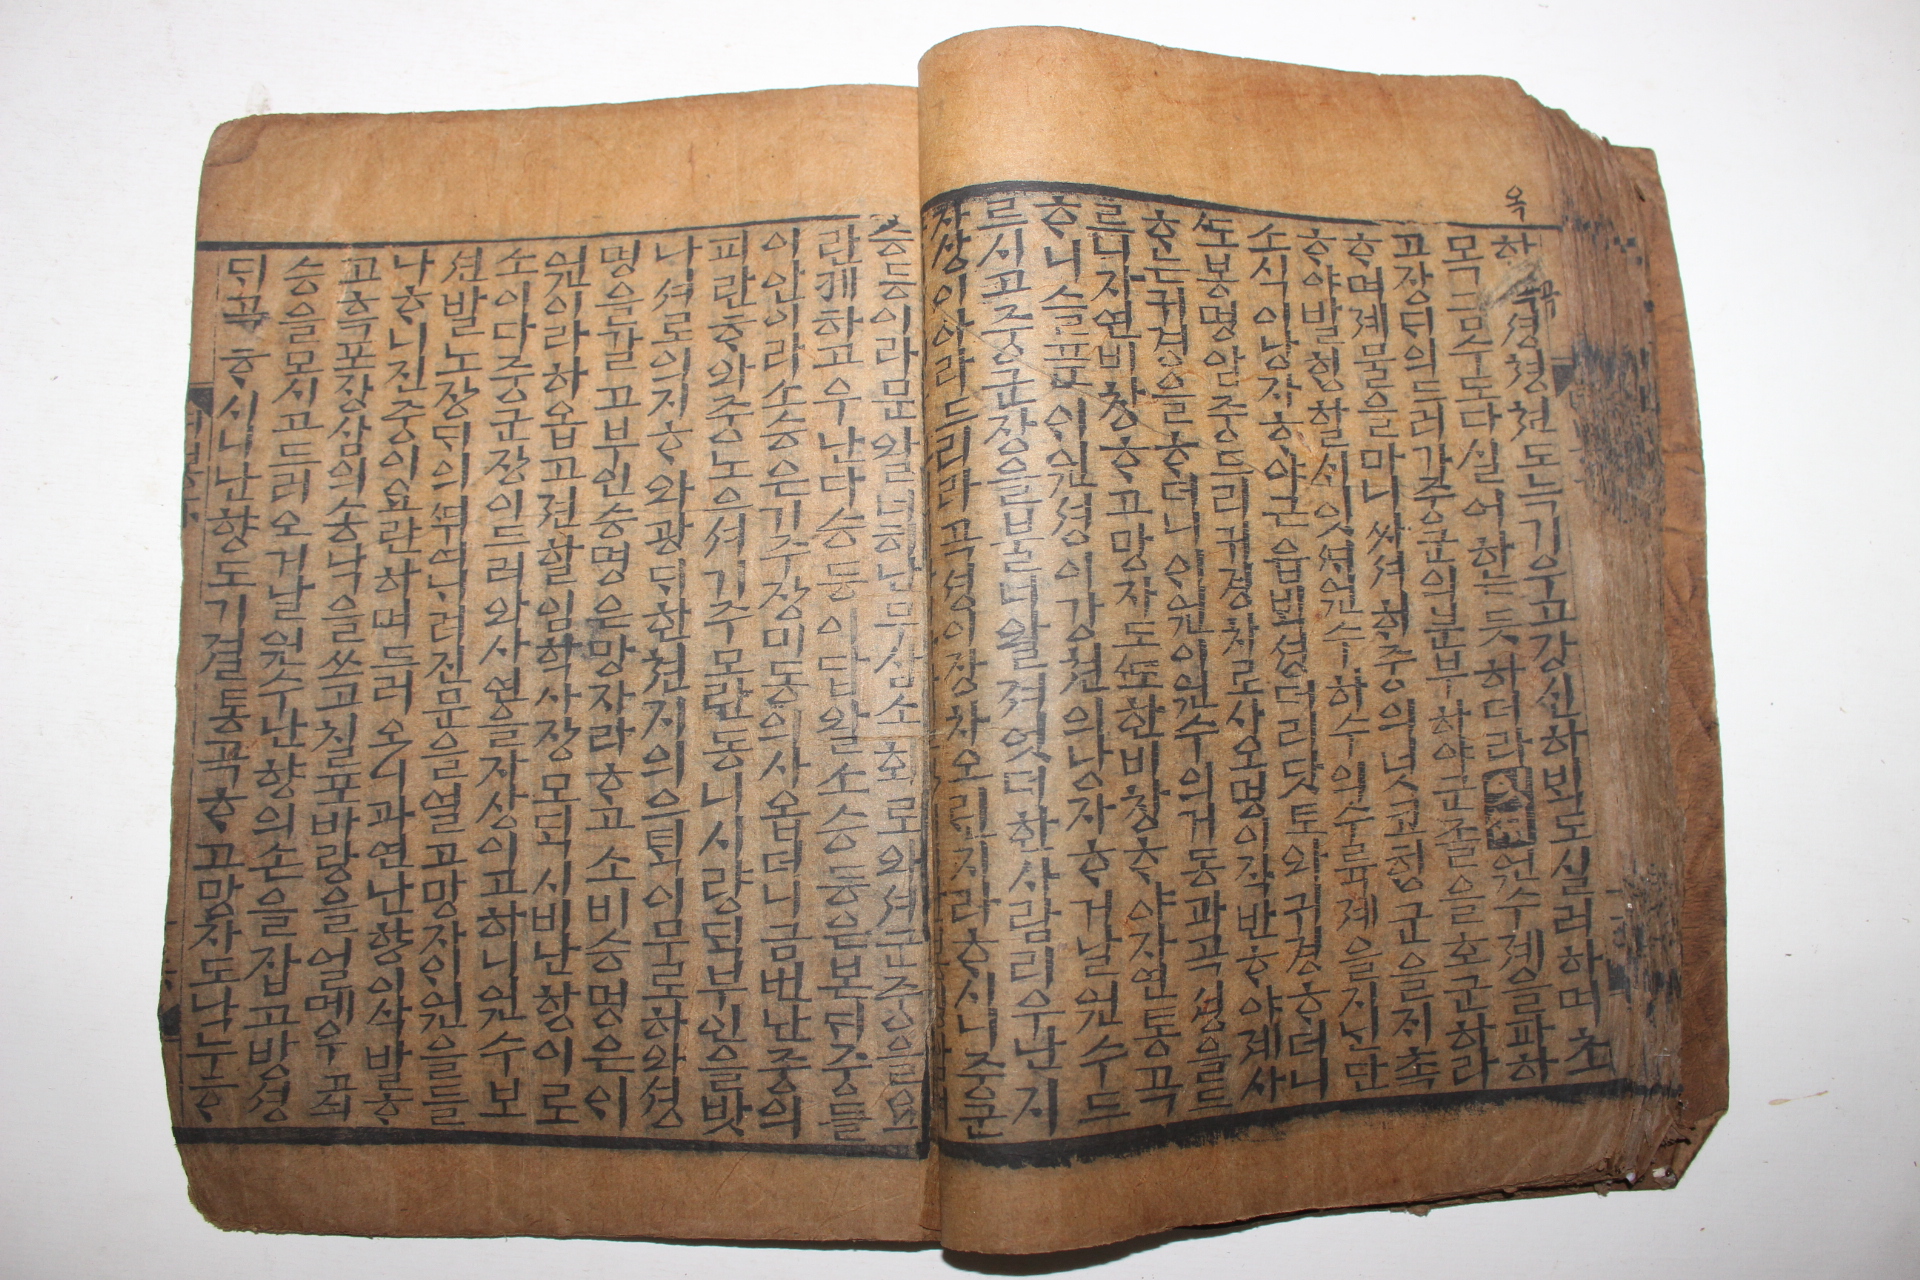 옥
하 셩쳥쳔도늑기우고강신하 도실러하며초
목금수도다실어하는듯하더라 원수졔을파하
고장듸의드러가중군의분부하야군졸을호군하라
ᄒᆞ며졔물을만니싸셔ᄒᆡ중의넛코ᄒᆡᆼ군을ᄌᆡ촉
ᄒᆞ야발ᄒᆡᆼ할시잇셔원수하수의수륙졔을지닌단
소식이낭자ᄒᆞ야근읍ᄇᆡᆨ셩드리닷토와귀경ᄒᆞ더니
도봉명암중드리귀경차로사오명이작반ᄒᆞ야졔사
ᄒᆞᆫ든귀경을ᄒᆞ더니이원이원수의거동과곡셩을드
르니자연비창ᄒᆞ고망자도또한비창ᄒᆞ야자연통곡
ᄒᆞ니슬푼이원셩이강쳔의낭자ᄒᆞ거날원수드
르시고중군장을불너왈져엇더한사람리우난지
자상이아라드리라곡셩이장차오린지라ᄒᆞ시니중군
승등이라문왈너ᄒᆞ난모삼소회로와셔군중을요
란케하고우난다승등이답왈소승등은본ᄃᆡ중들
이안이라소승은기주장미동의사옵더니금번난중의
피란ᄒᆞ와중노으셔기주모란동니시랑ᄃᆡᆨ부인을밧
나셔로의지ᄒᆞ와광ᄃᆡ한쳔지의으퇴이무로하와셩
명을갈고부인승명은망자라ᄒᆞ고소비승명은이
원이라하옵고젼할임학사장모되시비난향이로
소이다중군장이드러와사연을자상이고하니원수보
션발노장ᄃᆡ의ᄯᅱ여나려진문을열고망자이원을들
나ᄒᆞ니진중이요란하며드러오니과연난향이삭발ᄒᆞ
고흑포장삼의송낙을쓰고칠포바랑을얼메우고
승을모시고드러오거날원수난향의손을잡고방셩
ᄃᆡ곡ᄒᆞ시니난향도기졀통곡ᄒᆞ고망자도낙누ᄒᆞ